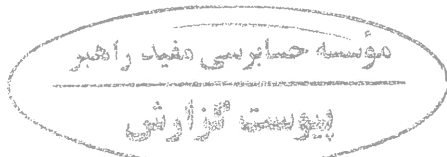 مؤسسه حسابرسی مفید راهبر
پیوست گزارش